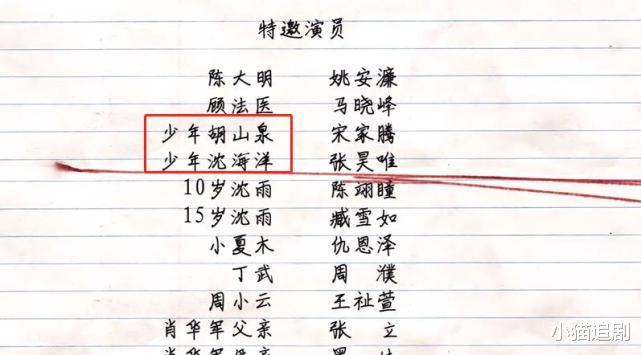 特邀演员
陈大明 姚安濂
顾法医 马晓峰
少年胡山泉 宋家腾
少年沈海洋 张昊唯
10岁沈雨 陈翊瞳
15岁沈雨 臧雪如
小夏木 仇恩泽
丁武 周濮
周小云 王祉萱
肖华军父亲 张立
小猫追剧